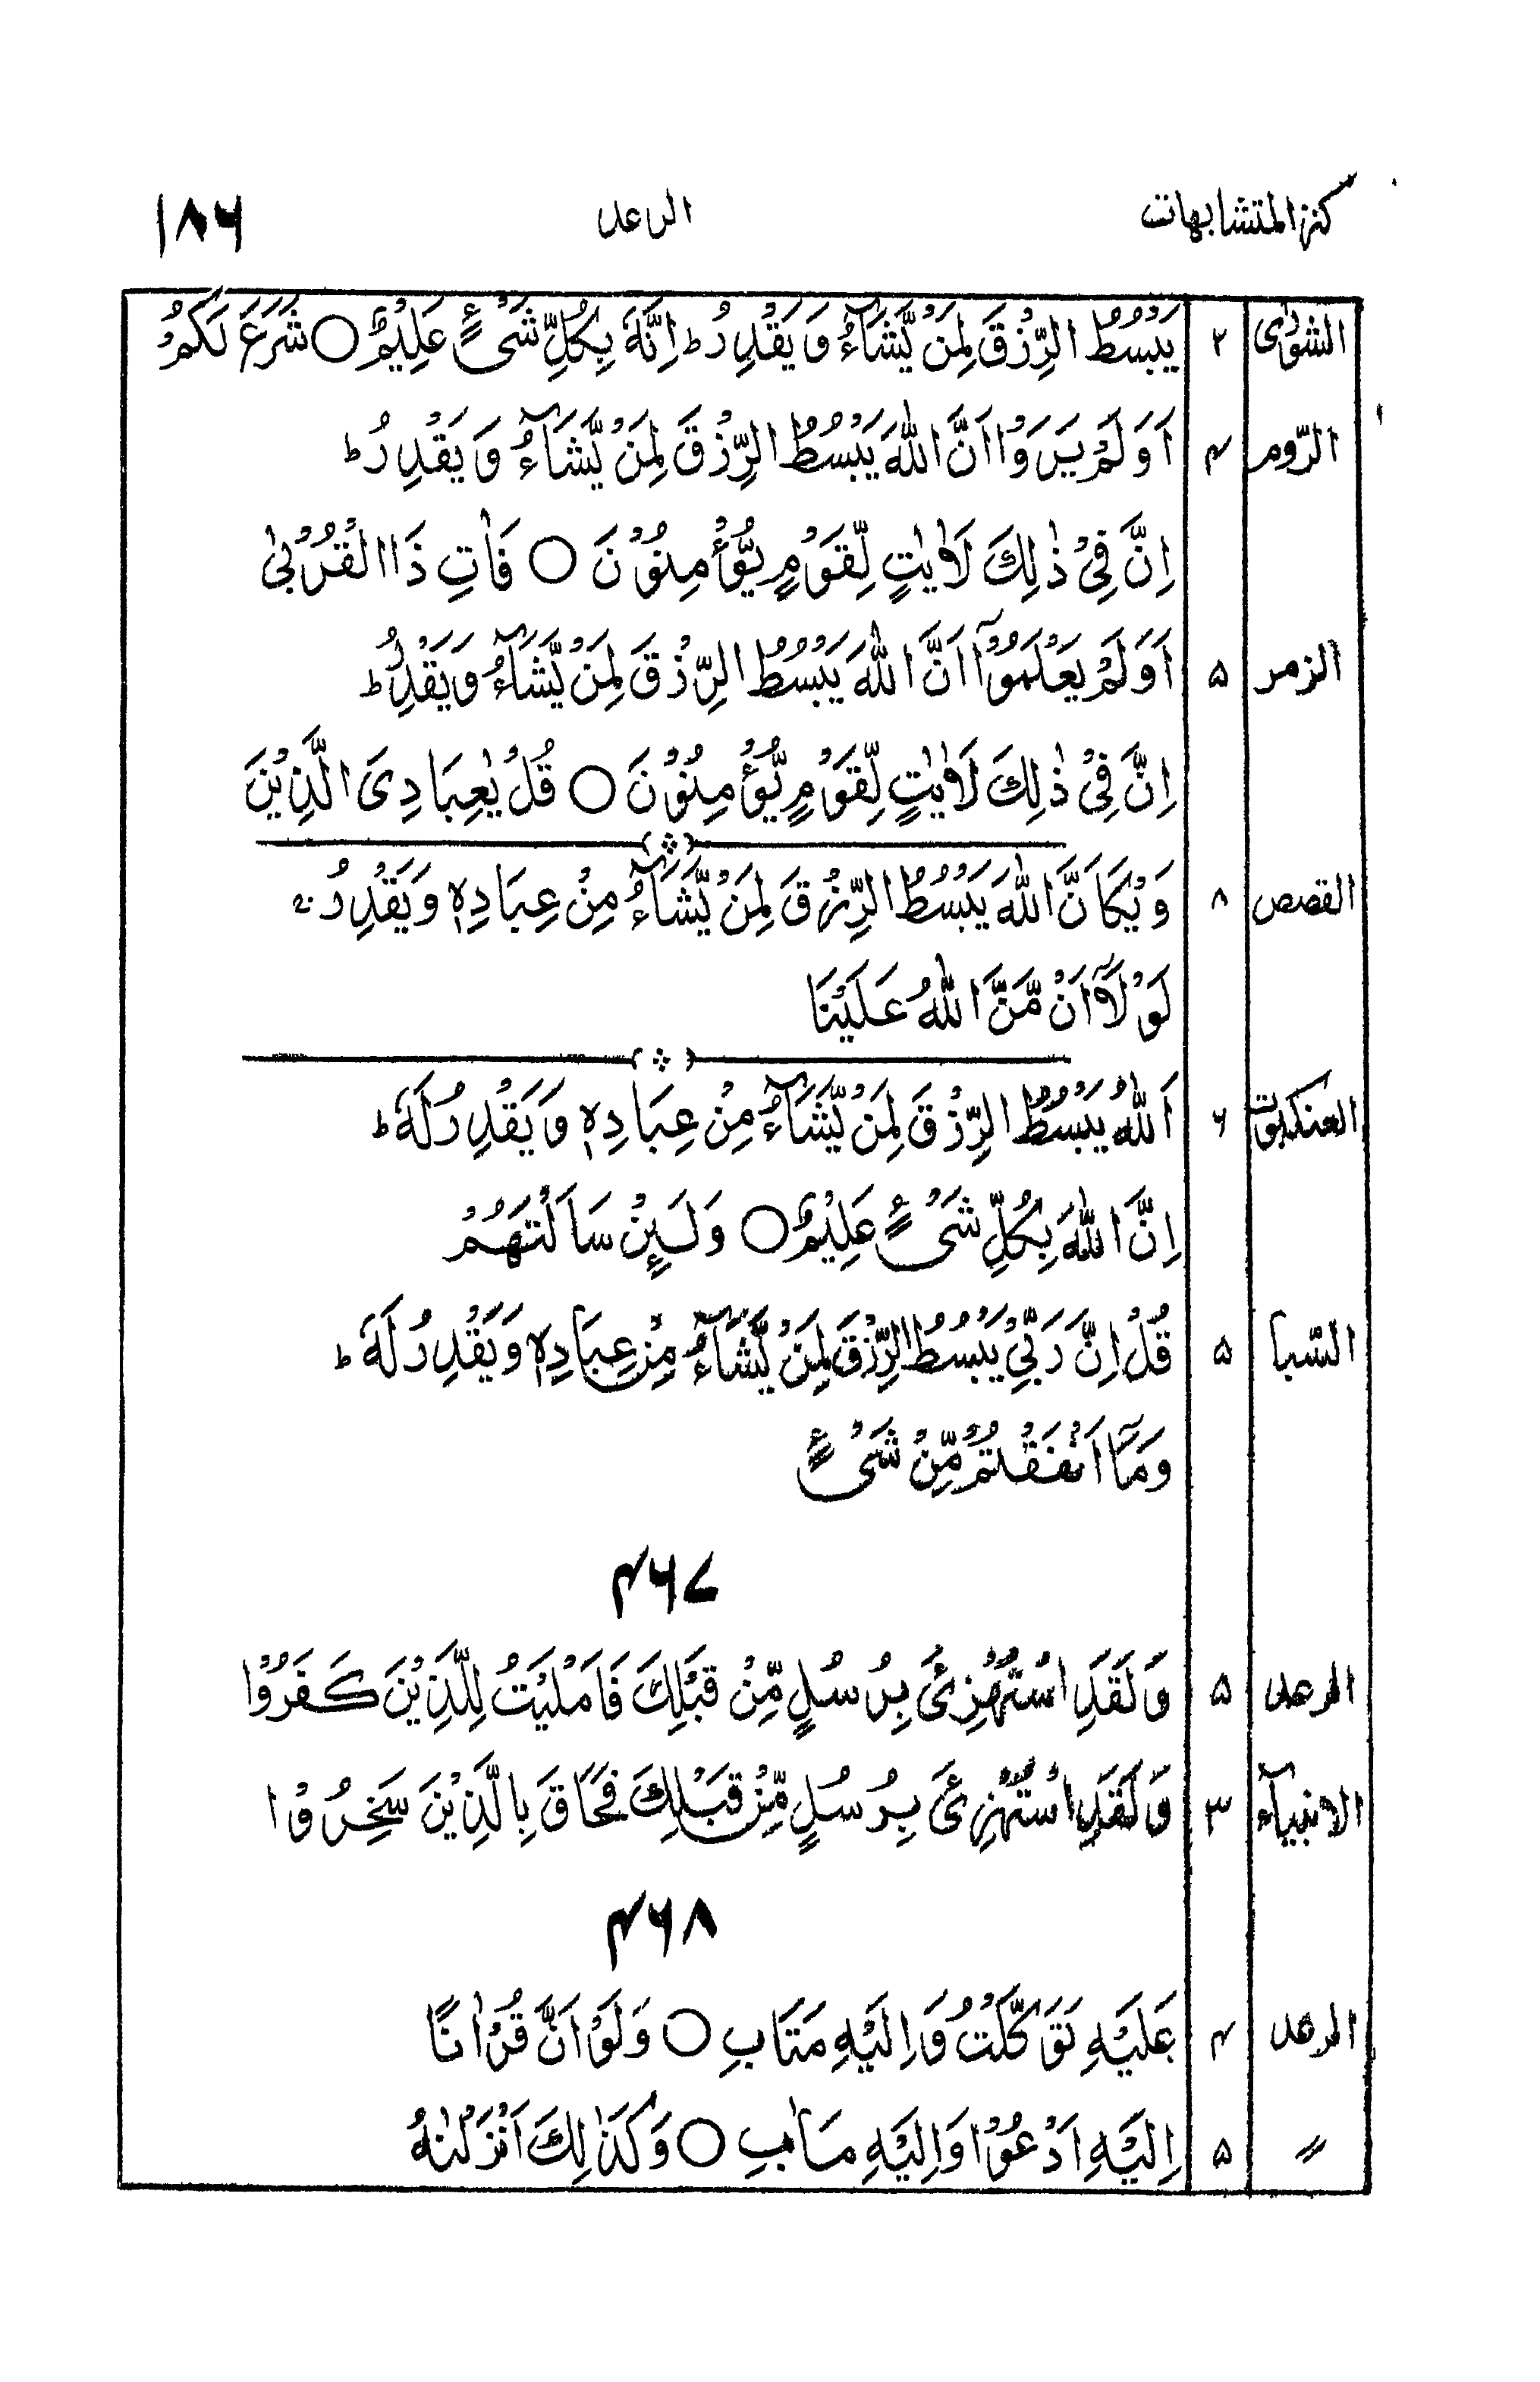 كنز المتشابهات الرعد ۱۸۶
الشورٰى ۲ يَبْسُطُ الرِّزْقَ لِمَنْ يَّشَآءُ وَ يَقْدِرُ ؕ اِنَّهٗ بِكُلِّ شَىْءٍ عَلِيْمٌ ○ شَرَعَ لَكُمْ
الرّوم ۴ اَوَ لَمْ يَرَوْا اَنَّ اللّٰهَ يَبْسُطُ الرِّزْقَ لِمَنْ يَّشَآءُ وَ يَقْدِرُ ؕ
اِنَّ فِىْ ذٰلِكَ لَاٰيٰتٍ لِّقَوْمٍ يُّؤْمِنُوْنَ ○ فَاٰتِ ذَا الْقُرْبٰى
الزمر ۵ اَوَ لَمْ يَعْلَمُوْۤا اَنَّ اللّٰهَ يَبْسُطُ الرِّزْقَ لِمَنْ يَّشَآءُ وَ يَقْدِرُ ؕ
اِنَّ فِىْ ذٰلِكَ لَاٰيٰتٍ لِّقَوْمٍ يُّؤْمِنُوْنَ ○ قُلْ يٰعِبَادِىَ الَّذِيْنَ
القصص ۸ وَيْكَاَنَّ اللّٰهَ يَبْسُطُ الرِّزْقَ لِمَنْ يَّشَآءُ مِنْ عِبَادِهٖ وَ يَقْدِرُ ۚ
لَوْ لَاۤ اَنْ مَّنَّ اللّٰهُ عَلَيْنَا
العنكبوت ۶ اَللّٰهُ يَبْسُطُ الرِّزْقَ لِمَنْ يَّشَآءُ مِنْ عِبَادِهٖ وَ يَقْدِرُ لَهٗ ؕ
اِنَّ اللّٰهَ بِكُلِّ شَىْءٍ عَلِيْمٌ ○ وَ لَئِنْ سَاَلْتَهُمْ
السّبا ۵ قُلْ اِنَّ رَبِّىْ يَبْسُطُ الرِّزْقَ لِمَنْ يَّشَآءُ مِنْ عِبَادِهٖ وَ يَقْدِرُ لَهٗ ؕ
وَ مَاۤ اَنْفَقْتُمْ مِّنْ شَىْءٍ
۴۶۷
الرعد ۵ وَ لَقَدِ اسْتُهْزِئَ بِرُسُلٍ مِّنْ قَبْلِكَ فَاَمْلَيْتُ لِلَّذِيْنَ كَفَرُوْا
الانبيآء ۳ وَ لَقَدِ اسْتُهْزِئَ بِرُسُلٍ مِّنْ قَبْلِكَ فَحَاقَ بِالَّذِيْنَ سَخِرُوْا
۴۶۸
الرعد ۴ عَلَيْهِ تَوَكَّلْتُ وَ اِلَيْهِ مَتَابِ ○ وَ لَوْ اَنَّ قُرْاٰنًا
〃 ۵ اِلَيْهِ اَدْعُوْا وَ اِلَيْهِ مَاٰبِ ○ وَ كَذٰلِكَ اَنْزَلْنٰهُ